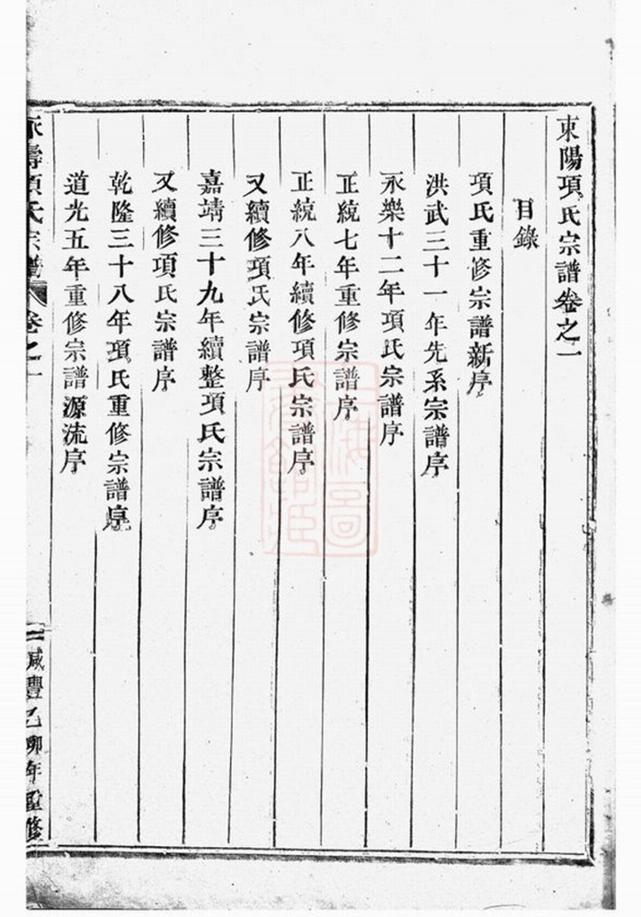 東陽項氏宗譜卷之一
目錄
項氏重修宗譜新序
洪武三十一年先系宗譜序
永樂十二年項氏宗譜序
正統七年重修宗譜序
正統八年續修項氏宗譜序
又續修項氏宗譜序
嘉靖三十九年續整項氏宗譜序
又續修項氏宗譜序
乾隆三十八年項氏重修宗譜序
道光五年重修宗譜源流序
永壽項氏宗譜 卷之一 咸豐乙卯年重修